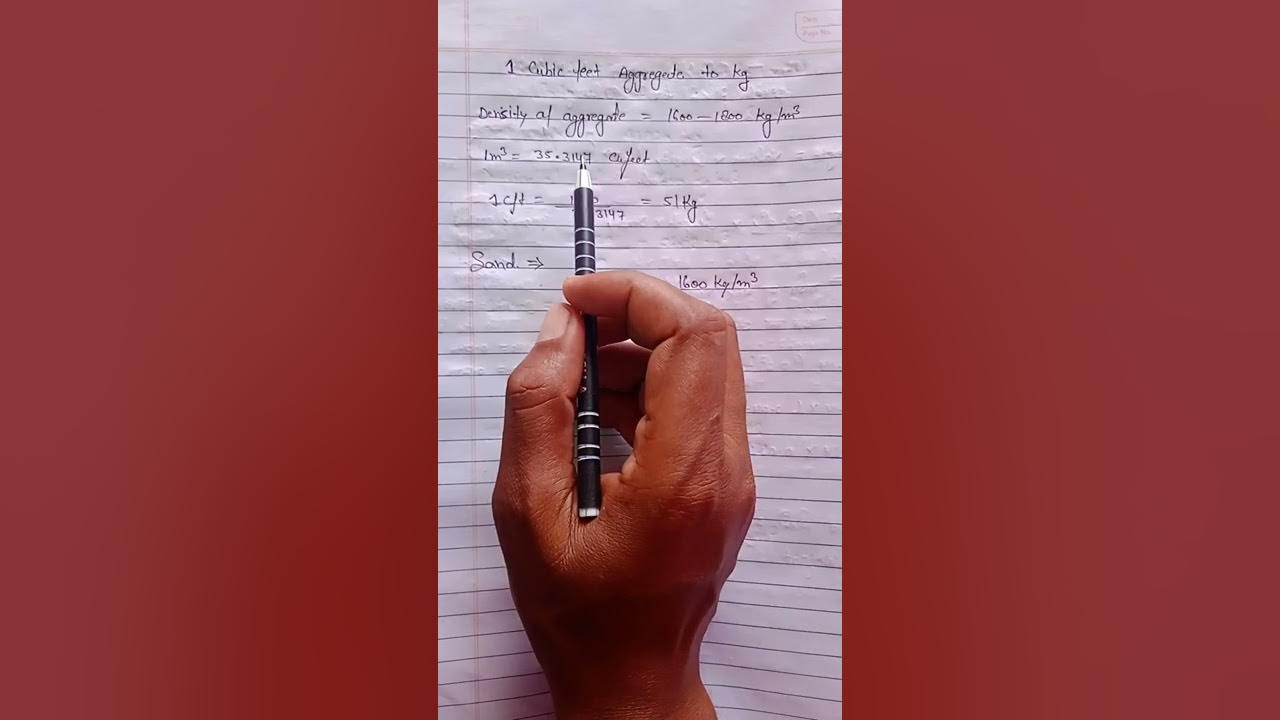 Date
Page No.
1 Cubic feet Aggregate to kg
Density of aggregate = 1600 – 1800 Kg/m³
1m³ = 35.3147 Cufeet
1 cft = 3147 = 51Kg
Sand. ⇒
1600 Kg/m³